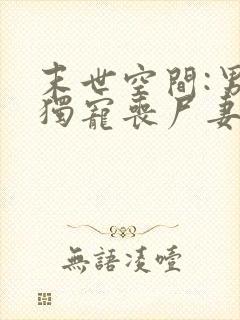 末世空間:男
獨寵喪尸妻
無語凌噎